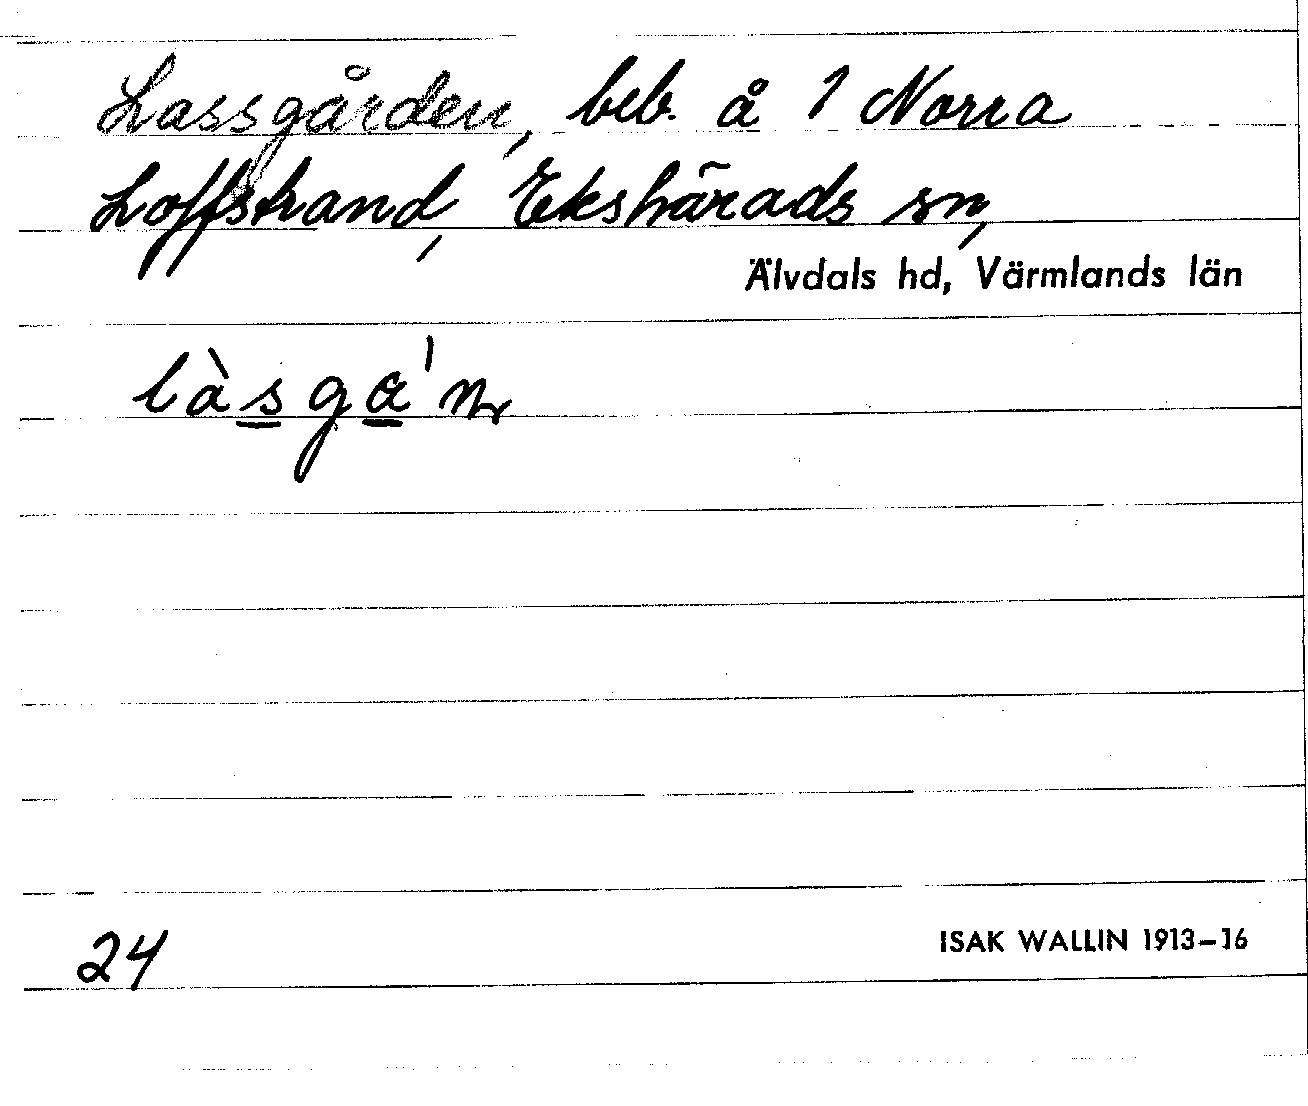 Lassgården, beb. å 1 Norra
Loffstrand, Ekshärads sn,
Älvdals hd, Värmlands län
làsgα'n
24
ISAK WALLIN 1913–16